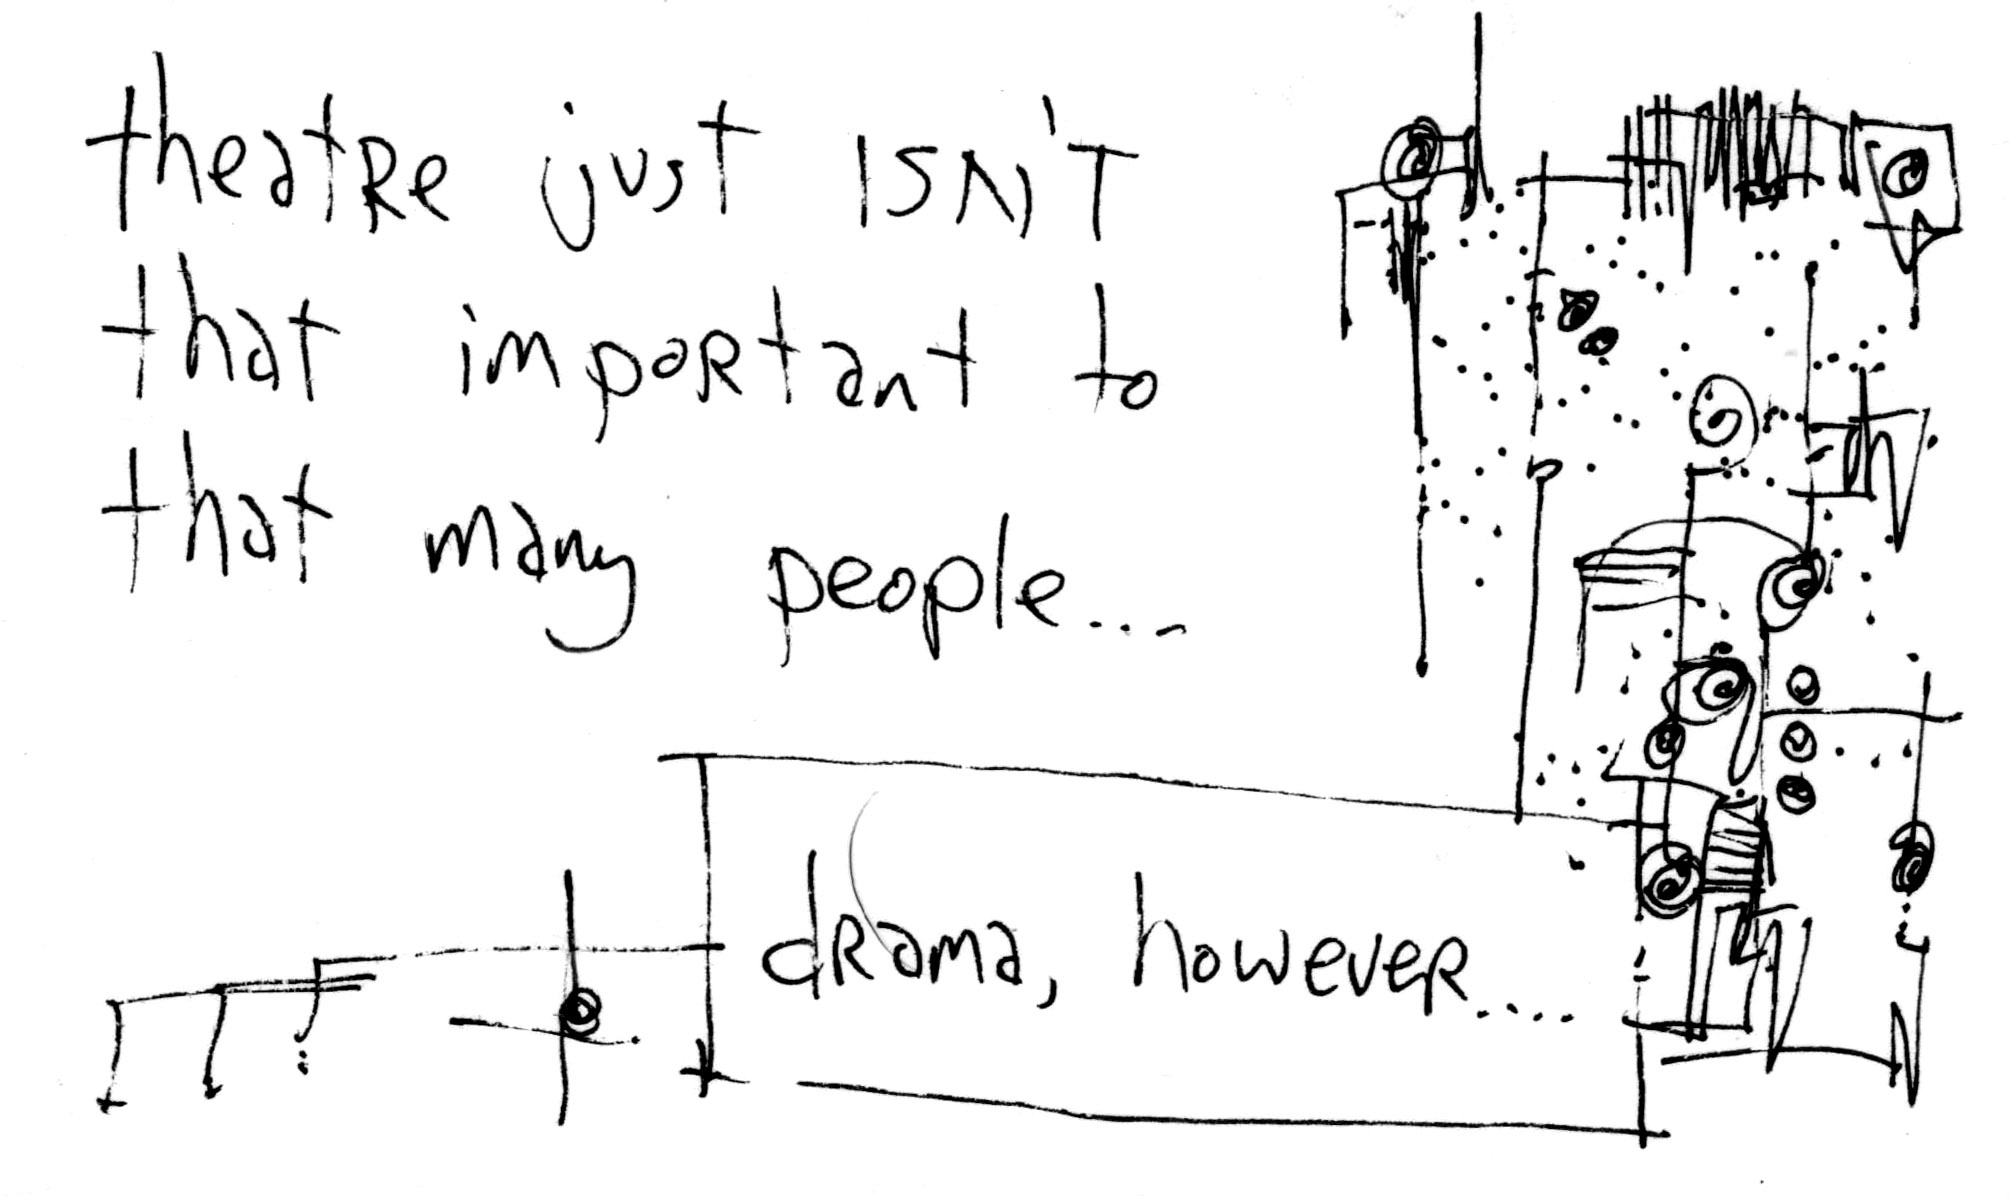 theatre just ISN'T
that important to
that many people....
drama, however.....